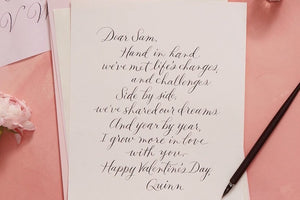 Dear Sam,
Hand in hand,
we've met life's changes,
and challenges
Side by side,
we've shared our dreams
And year by year,
I grow more in love
with you.
Happy Valentine's Day
Quinn